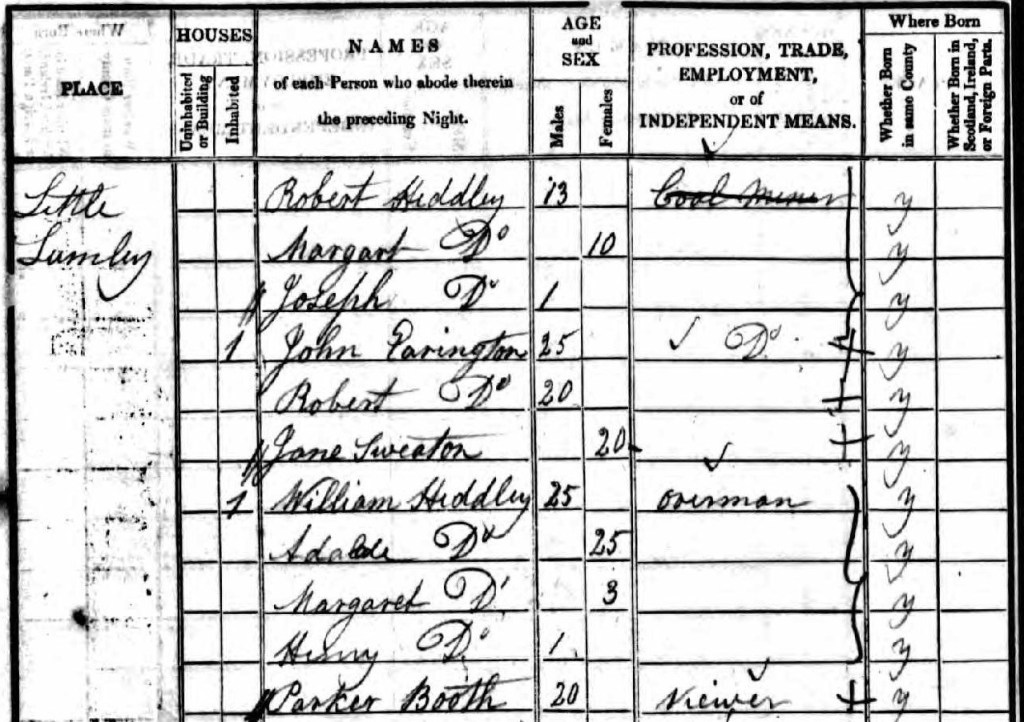 PLACE HOUSES Uninhabited or Building Inhabited NAMES of each Person who abode therein the preceding Night. AGE and SEX Males Females PROFESSION, TRADE, EMPLOYMENT, or of INDEPENDENT MEANS. Where Born Whether Born in same County Whether Born in Scotland, Ireland, or Foreign Parts.
Little Robert Hiddley 13 Coal Miner y
Lumley Margart Do 10 y
Joseph Do 1 y
1 John Parington 25 Do y
Robert Do 20 y
Jane Sweaton 20 y
1 William Hiddley 25 overman y
Do 25 y
Margaret Do 3 y
Henry Do 1 y
Parker Booth 20 Viewer y